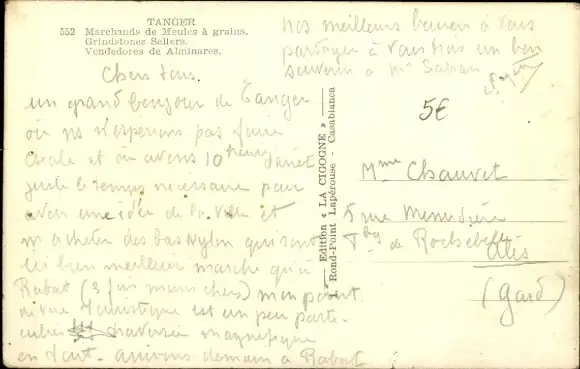 TANGER
552 Marchands de Meules à grains.
Grindstones Sellers.
Vendedores de Alminares.
Chers tous.
un grand bonjour de Tanger
où ns n'esperions pas faire
escale et où avons 10 heures d'arrêt
juste le temps nécessaire pour
avoir une idée de la ville et
m'acheter des bas Nylon qui sont
bien meilleur marché qu'à
Rabat (3 fois moins chers) mon point
de vue touristique est un peu parti-
culier traversée magnifique
en tout. arrivons demain à Rabat
nos meilleurs baisers à vous
partager à vous trois un bon
souvenir à Mr
Edition « LA CIGOGNE »
Rond-Point Lapérouse - Casablanca
5€
Mme Chauvet
5 rue
de Rochebelle
Alès
(Gard)